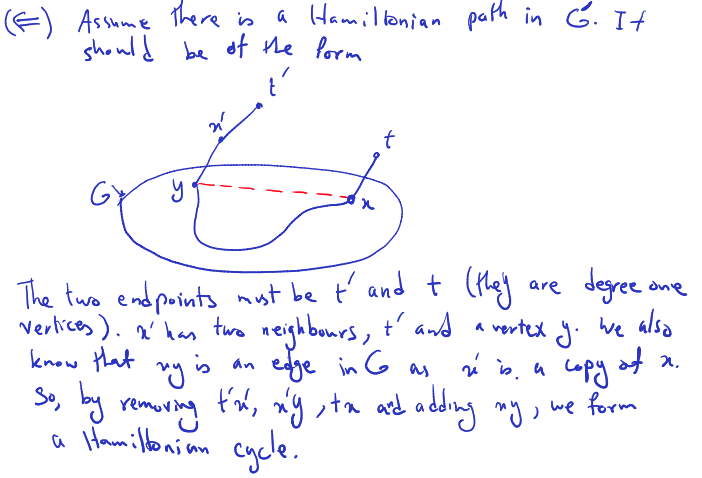 (⇐) Assume there is a Hamiltonian path in G'. It
should be of the form
t'
x'
t
G
y
x
The two endpoints must be t' and t (they are degree one
vertices). x' has two neighbours, t' and a vertex y. We also
know that xy is an edge in G as x' is a copy of x.
So, by removing t'x', x'y, tx and adding xy, we form
a Hamiltonian cycle.